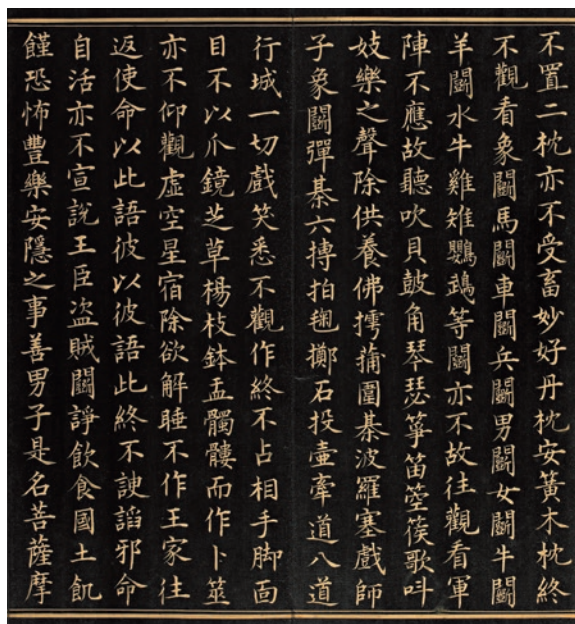 不置二枕亦不受畜妙好丹枕安簧木枕終
不觀看象鬪馬鬪車鬪兵鬪男鬪女鬪牛鬪
羊鬪水牛雞雉鸚鵡等鬪亦不故往觀看軍
陣不應故聽吹貝皷角琴瑟箏笛箜篌歌叫
妓樂之聲除供養佛摴蒱圍碁波羅塞戲師
子象鬪彈碁六搏拍毱擲石投壷牽道八道
行城一切戲笑悉不觀作終不占相手脚面
目不以爪鏡芝草楊枝鉢盂髑髏而作卜筮
亦不仰觀虛空星宿除欲解睡不作王家往
返使命以此語彼以彼語此終不諛諂邪命
自活亦不宣說王臣盜賊鬪諍飲食國土飢
饉恐怖豐樂安隱之事善男子是名菩薩摩